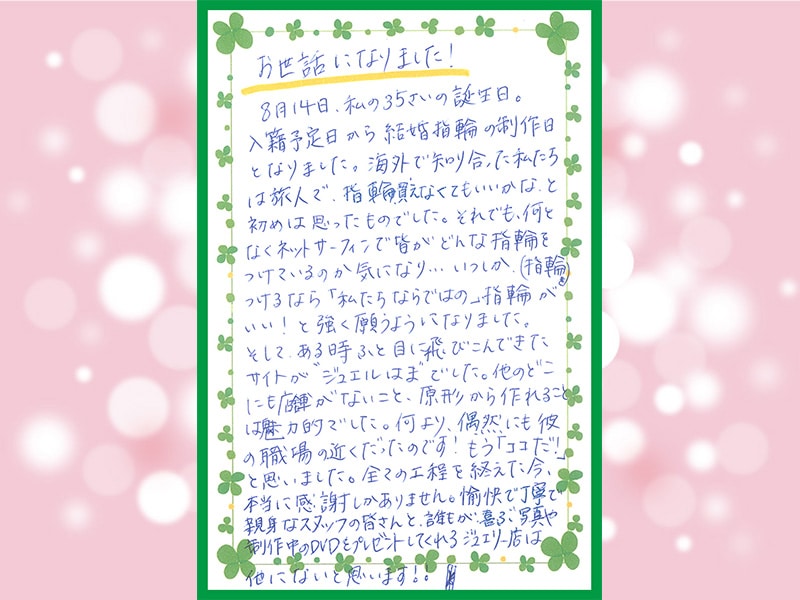 お世話になりました!
8月14日、私の35さいの誕生日。
入籍予定日から結婚指輪の制作日
となりました。海外で知り合った私たち
は旅人で、指輪買えなくてもいいかな、と
初めは思ったものでした。それでも、何と
なくネットサーフィンで皆がどんな指輪を
つけているのか気になり…いつしか、(指輪)
つけるなら「私たちならではの」指輪が
いい!と強く願うようになりました。
そして、ある時ふと目に飛びこんできた
サイトが"ジュエルはま"でした。他のどこ
にも店舗がないこと、原形から作れること
は魅力的でした。何より、偶然にも彼
の職場の近くだったのです!もう「ココだ!」
と思いました。全ての工程を終えた今、
本当に感謝しかありません。愉快で丁寧で
親身なスタッフの皆さんと、誰もが喜ぶ写真や
制作中のDVDをプレゼントしてくれるジュエリー店は
他にないと思います!!